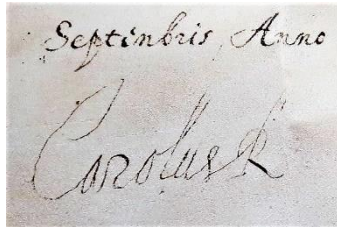 Septenbris, Anno
Carolus R